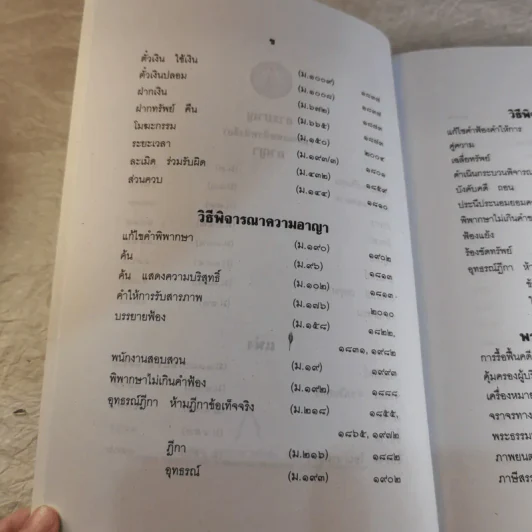 ข
ตั๋วเงิน ใช้เงิน (ม.๑๐๐๙)
ตั๋วเงินปลอม (ม.๑๐๐๘)
ฝากเงิน (ม.๖๗๒)
ฝากทรัพย์ คืน (ม.๖๖๕)
โมฆะกรรม (ม.๑๕๐)
ระยะเวลา (ม.๑๙๓/๓) ๒๐๐๔
ละเมิด ร่วมรับผิด (ม.๔๓๒) ๑๘๐๑
ส่วนควบ (ม.๑๔๔) ๑๘๕๙
๑๘๑๐
วิธีพิจารณาความอาญา
แก้ไขคำพิพากษา (ม.๑๙๐) ๑๙๐๒
ค้น (ม.๙๖) ๑๘๑๓
ค้น แสดงความบริสุทธิ์ (ม.๑๐๒) ๑๘๑๓
คำให้การรับสารภาพ (ม.๑๗๖) ๒๐๑๐
บรรยายฟ้อง (ม.๑๕๘) ๑๘๒๒,
๑๘๓๑, ๑๙๘๒
พนักงานสอบสวน (ม.๑๙) ๑๙๙๓
พิพากษาไม่เกินคำฟ้อง (ม.๑๙๒) ๑๘๘๘
อุทธรณ์ฎีกา ห้ามฎีกาข้อเท็จจริง (ม.๒๑๘) ๑๘๕๕,
๑๘๖๕, ๑๙๗๒
ฎีกา (ม.๒๑๖) ๑๘๘๒
อุทธรณ์ (ม.๑๙๓) ๑๙๐๒
แก้ไขคำฟ้องคำให้การ
คู่ความ
เฉลี่ยทรัพย์
ดำเนินกระบวนพิจารณ
บังคับคดี ถอน
ประนีประนอมยอมค
พิพากษาไม่เกินคำข
ฟ้องแย้ง
ร้องขัดทรัพย์
อุทธรณ์ฎีกา ห้า
ข้
พร
การรื้อฟื้นคดี
คุ้มครองผู้บริ
เครื่องหมาย
จราจรทาง
พระธรรม
ภาพยนต
ภาษีสรร